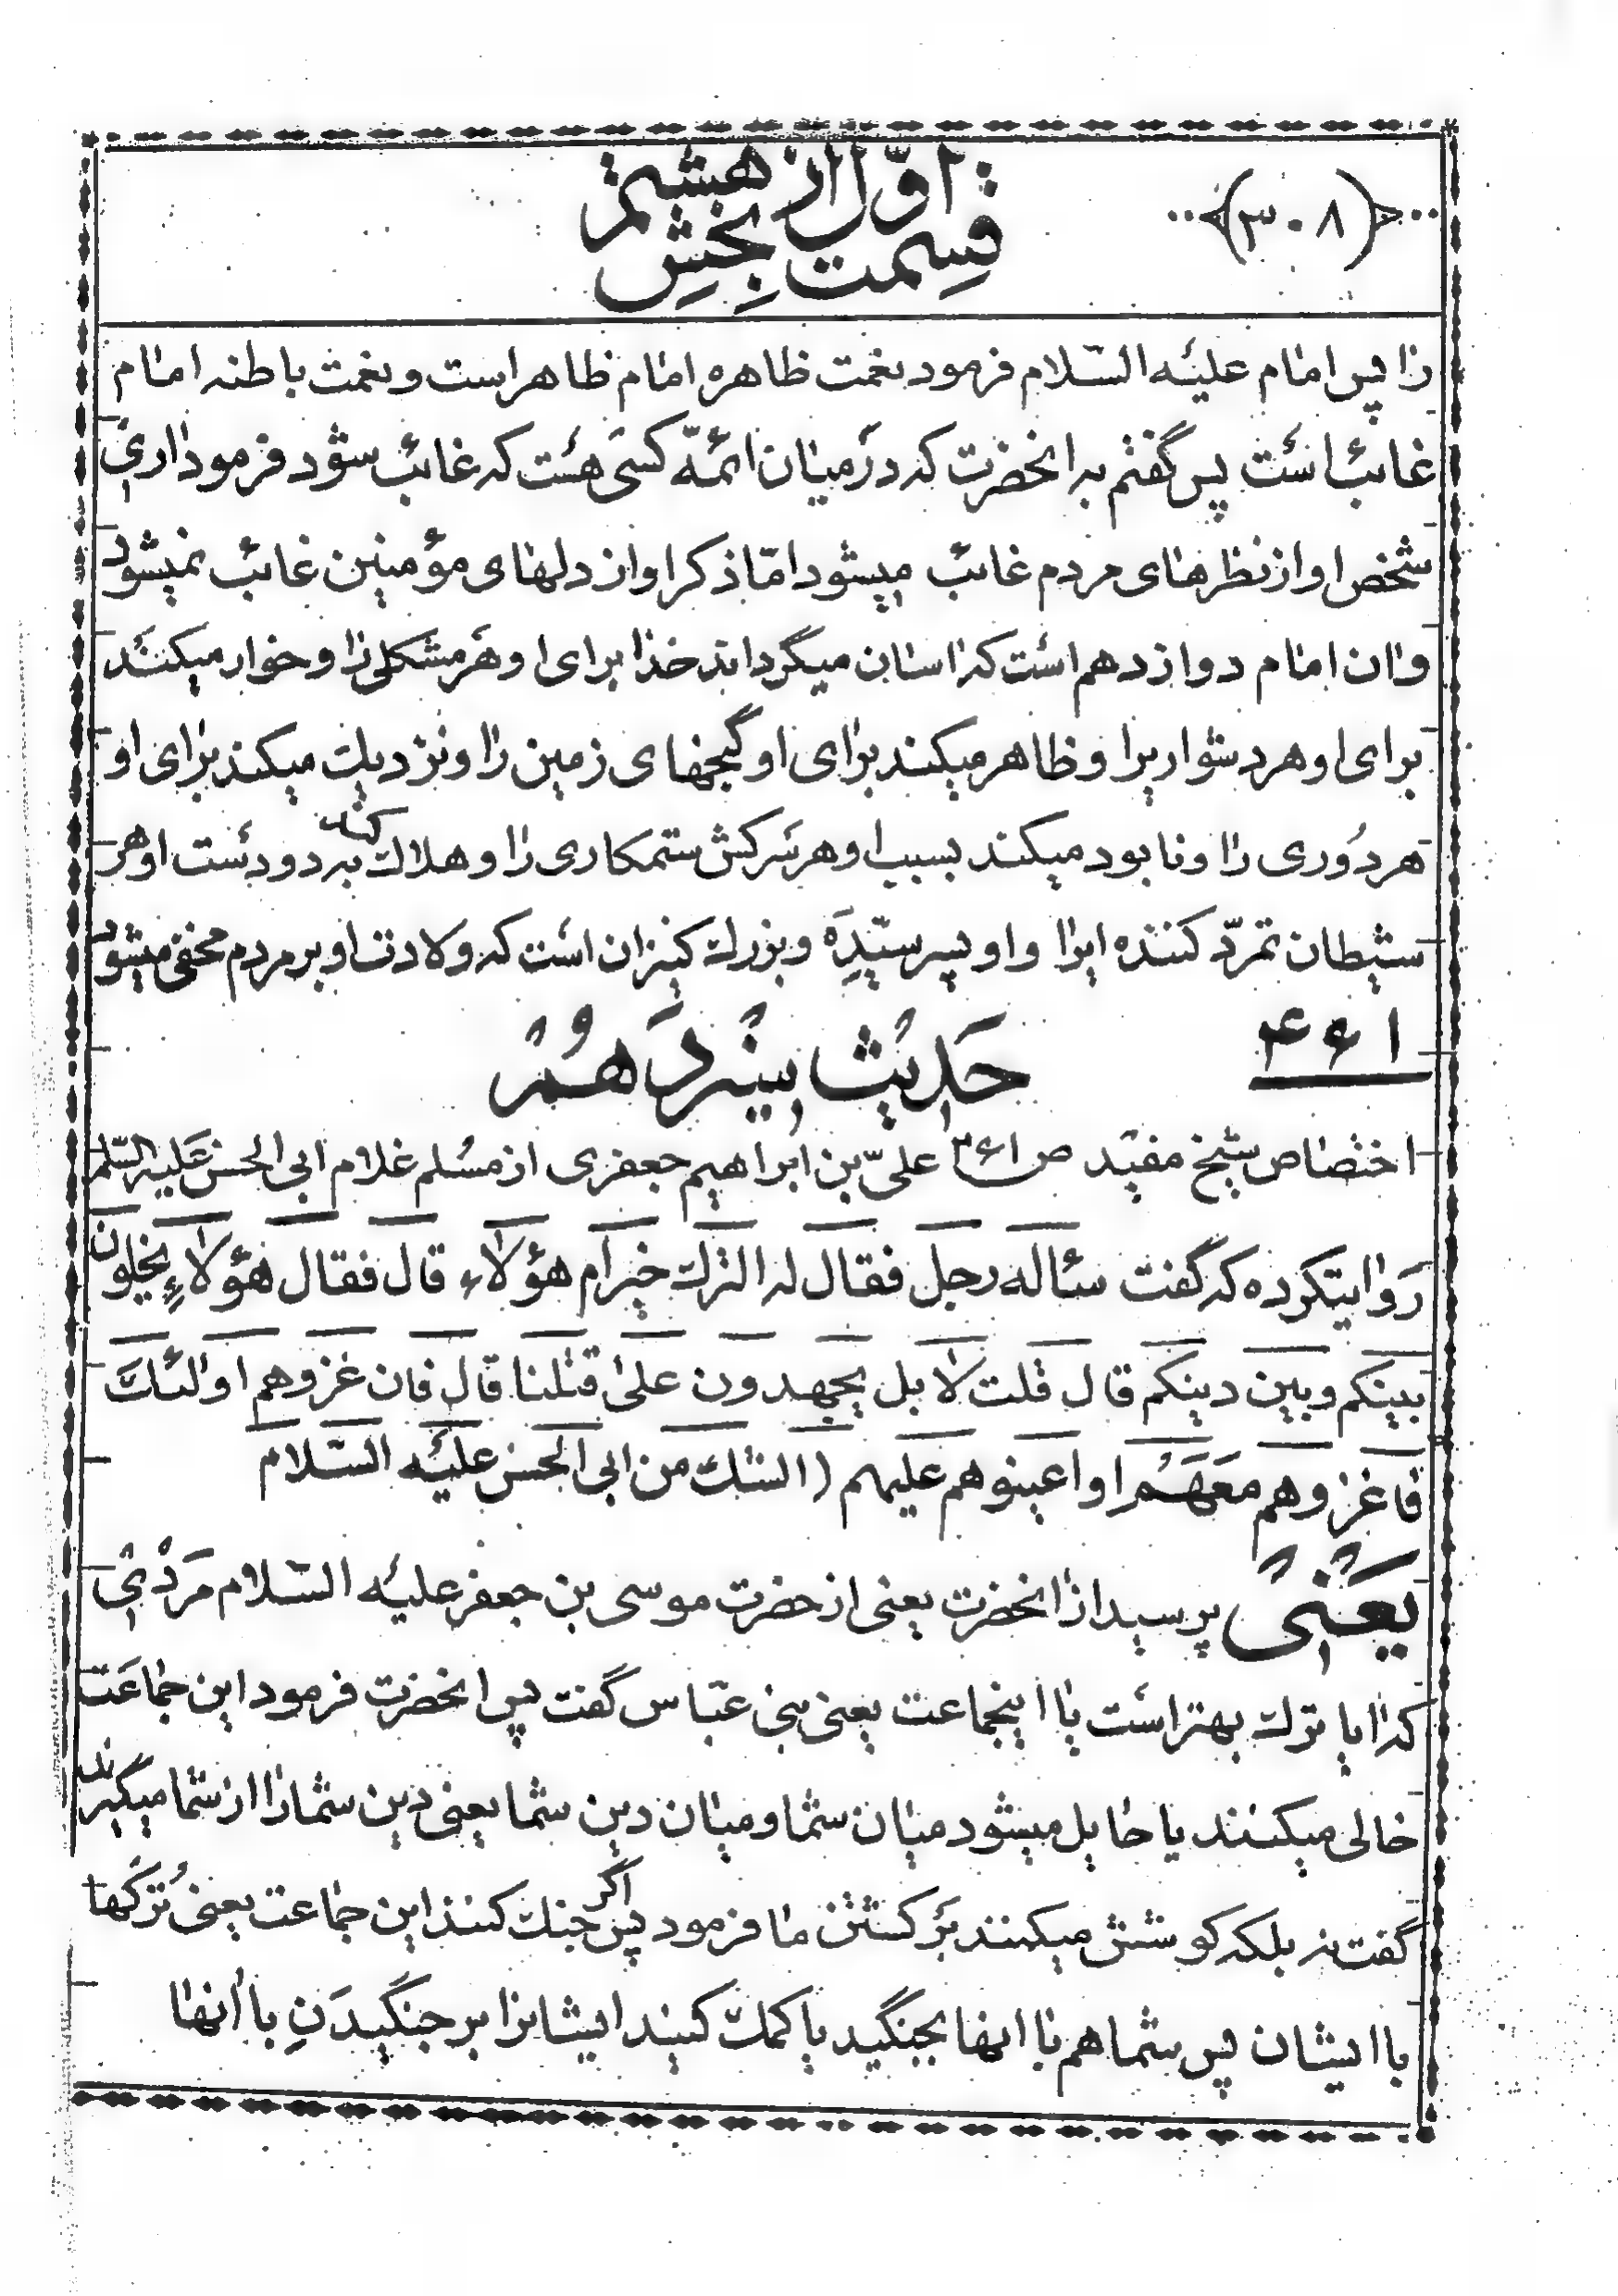 (۳۰۸)
قسمت اوّل از بخش هشتم
را پس امام علیه السّلام فرمود نعمت ظاهره امام ظاهر است و نعمت باطنه امام
غائب است پس گفتم به انحضرت که در میان ائمّه کسی هست که غائب شود فرمود اری
شخص او از نظرهای مردم غائب میشود امّا ذکر او از دلهای مؤمنین غائب نمیشود
و ان امام دوازدهم است که اسان میگرداند خدا برای او هر مشکلی را و خوار میکند
برای او هر دشواریرا و ظاهر میکند برای او گنجهای زمین را و نزدیک میکند برای او
هر دوری را و نابود میکند بسبب او هر سرکش ستمکاری را و هلاک کند به دو دست او هر
شیطان تمرّد کننده ایرا و او پسر سیّدِه و بزرک کنیزان است که ولادت او بر مردم مخفی میشود
۴۶۱
حَدیث سیزدَهُم
اختصاص شیخ مفید ص ۲۶۱ علیّ بن ابراهیم جعفری از مسلم غلام ابی الحسن علیه السّلم
رَوایتکرده که گفت سئاله رجل فقال له الترک خیر ام هؤلاء قال فقال هؤلاءِ یخلون
بینکم و بین دینکم قال قلت لا بل یجهدون علی قتلنا قال فان غزوهم اولئک
فاغزوهم معَهَم او اعینوهم علیهم (الشک من ابی الحسن علیه السّلام
یَعنی پرسید از انحضرت یعنی از حضرت موسی بن جعفر علیه السّلام مَردی
که ایا ترک بهتر است یا اینجماعت یعنی بنی عبّاس گفت پس انحضرت فرمود این جماعَت
خالی میکنند یا حایل میشود میان شما و میان دین شما یعنی دین شما را از شما میگیرند
گفت نه بلکه کوشش میکنند بر کشتن ما فرمود پس اگر جنک کنند این جماعت یعنی تُرکها
با ایشان پس شما هم با انها بجنگید یا کمک کنید ایشانرا بر جنگیدَنِ با انها